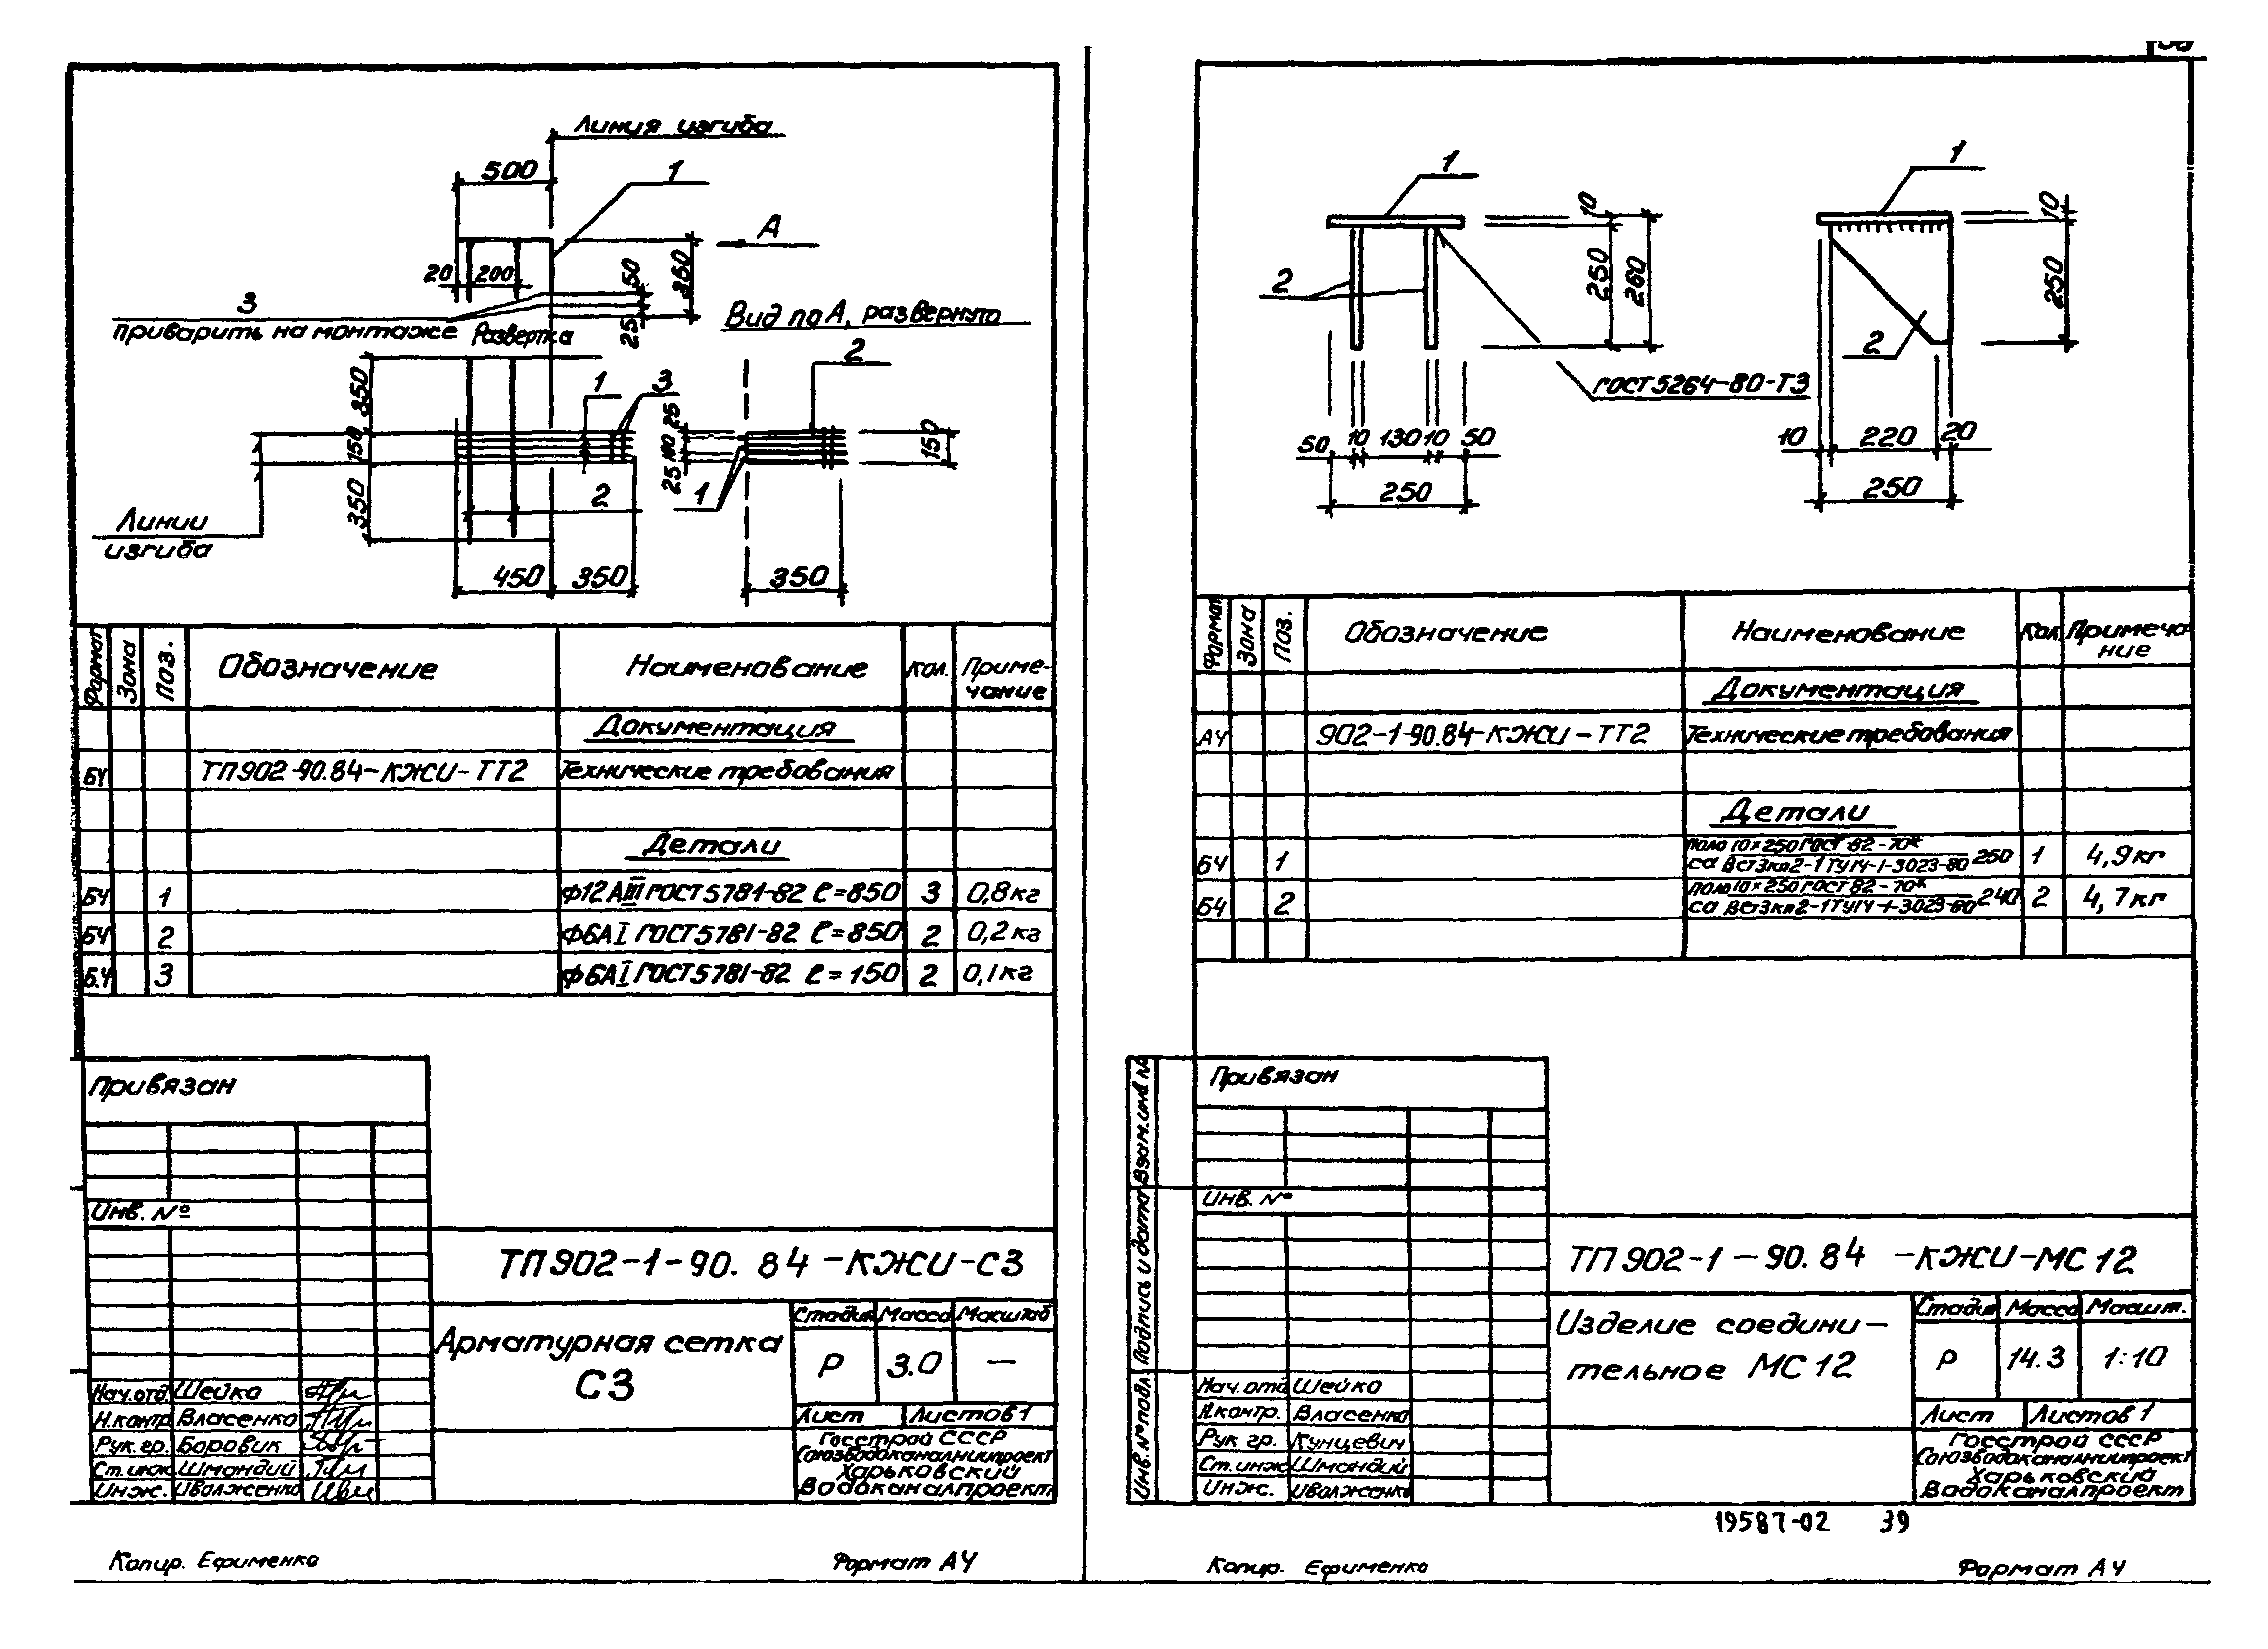 Линия изгиба
500
1
А
20
200
50
360
25
3
приварить на монтаже
Развертка
Вид по А, развернуто
2
350
150
350
1
3
25
100
25
150
1
2
Линии
изгиба
450
350
350
Формат
Зона
Поз.
Обозначение
Наименование
Кол.
Приме-
чание
Документация
БЧ ТП902-90.84-КЖИ-ТТ2 Технические требования
Детали
БЧ 1 Ф12АIII ГОСТ5781-82 ℓ=850 3 0,8кг
БЧ 2 Ф6АI ГОСТ5781-82 ℓ=850 2 0,2кг
Б.Ч 3 Ф6АI ГОСТ5781-82 ℓ=150 2 0,1кг
Привязан
Инв. №
ТП902-1-90.84-КЖИ-С3
Арматурная сетка
С3
Стадия Масса Масштаб
Р 3.0 —
Лист Листов 1
Госстрой СССР
Союзводоканалниипроект
Харьковский
Водоканалпроект
Нач.отд. Шейко
Н.контр. Власенко
Рук.гр. Боровик
Ст.инж. Шмандий
Инж. Иваженко
Копир. Ефименко
Формат А4
1
2
10
250
260
ГОСТ5264-80-Т3
50 10 130 10 50
250
1
10
250
2
10 220 20
250
Формат
Зона
Поз.
Обозначение
Наименование
Кол.
Примеча-
ние
Документация
А4 902-1-90.84-КЖИ-ТТ2 Технические требования
Детали
БЧ 1 Поло 10×250 ГОСТ 82-70* 250 1 4,9кг
Са ВСт3кп2-1 ТУ14-1-3023-80
БЧ 2 Поло 10×250 ГОСТ 82-70* 240 2 4,7кг
Са ВСт3кп2-1 ТУ14-1-3023-80
Взам.инв.№
Подпись и дата
Инв.№подл
Привязан
Инв. №
ТП902-1-90.84-КЖИ-МС12
Изделие соедини-
тельное МС12
Стадия Масса Масшт.
Р 14.3 1:10
Лист Листов 1
Госстрой СССР
Союзводоканалниипроект
Харьковский
Водоканалпроект
Нач.отд Шейко
Н.контр. Власенко
Рук гр. Кунцевич
Ст.инж Шмандий
Инж. Иваженко
19587-02 39
Копир. Ефименко
Формат А4